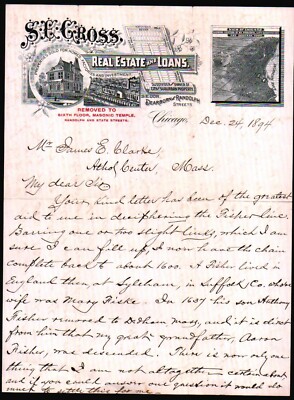 S. E. GROSS,
REAL ESTATE AND LOANS.
DEARBORN AND RANDOLPH
STREETS
REMOVED TO
SIXTH FLOOR, MASONIC TEMPLE,
RANDOLPH AND STATE STREETS.
Chicago, Dec. 24, 1894
Mr James E. Clarke
Athol Center, Mass.
My dear Sir
Your kind letter has been of the greatest
aid to me in deciphering the Fisher line.
Barring one or two slight links, which I am
sure I can fill up, I now have the chain
complete back to about 1600. A Fisher lived in
England then, at Syleham, in Suffolk Co. whose
wife was Mary Fiske. In 1637 his son Anthony
Fisher removed to Dedham Mass, and it is direct
from him that my great grandfather, Aaron
Fisher, was descended. There is now only one
thing that I am not altogether certain about
and if you could answer one question it would do
much to settle this for me.